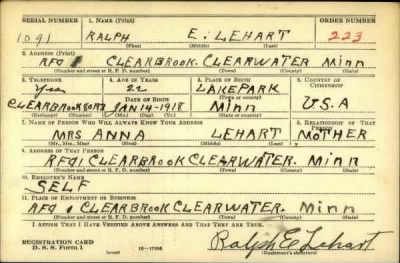 SERIAL NUMBER 1. NAME (Print) ORDER NUMBER
1091 RALPH E. LEHART 223
(First) (Middle) (Last)
2. ADDRESS (Print)
RFD 1 CLEARBROOK. CLEARWATER Minn
(Number and street or R. F. D. number) (Town) (County) (State)
3. TELEPHONE 4. AGE IN YEARS 5. PLACE OF BIRTH 6. COUNTRY OF CITIZENSHIP
Yes 22 LAKEPARK
DATE OF BIRTH (Town or county)
CLEARBROOK JAN 14-1918 Minn U.S.A
(Exchange) (Number) (Mo.) (Day) (Yr.) (State or country)
7. NAME OF PERSON WHO WILL ALWAYS KNOW YOUR ADDRESS 8. RELATIONSHIP OF THAT PERSON
MRS ANNA LEHART MOTHER
(Mr., Mrs., Miss) (First) (Middle) (Last)
9. ADDRESS OF THAT PERSON
RFD 1 CLEARBROOK CLEARWATER. Minn
(Number and street or R. F. D. number) (Town) (County) (State)
10. EMPLOYER'S NAME
SELF
11. PLACE OF EMPLOYMENT OR BUSINESS
RFD 1 CLEARBROOK CLEARWATER. Minn
(Number and street or R. F. D. number) (Town) (County) (State)
I AFFIRM THAT I HAVE VERIFIED ABOVE ANSWERS AND THAT THEY ARE TRUE.
REGISTRATION CARD
D. S. Form 1 Ralph E Lehart
(Registrant's signature)